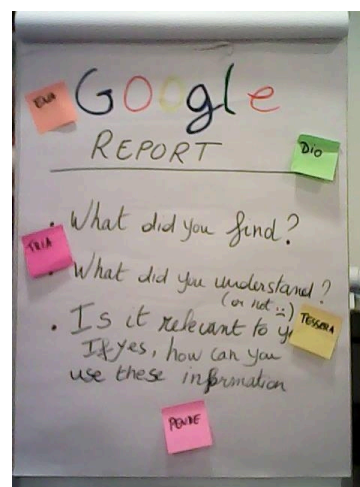 ENA
Google
REPORT
DIO
• What did you find?
TRIA
• What did you understand?
(or not :)
• Is it relevant to y
TESSERA
If yes, how can you
use these information
PENDE